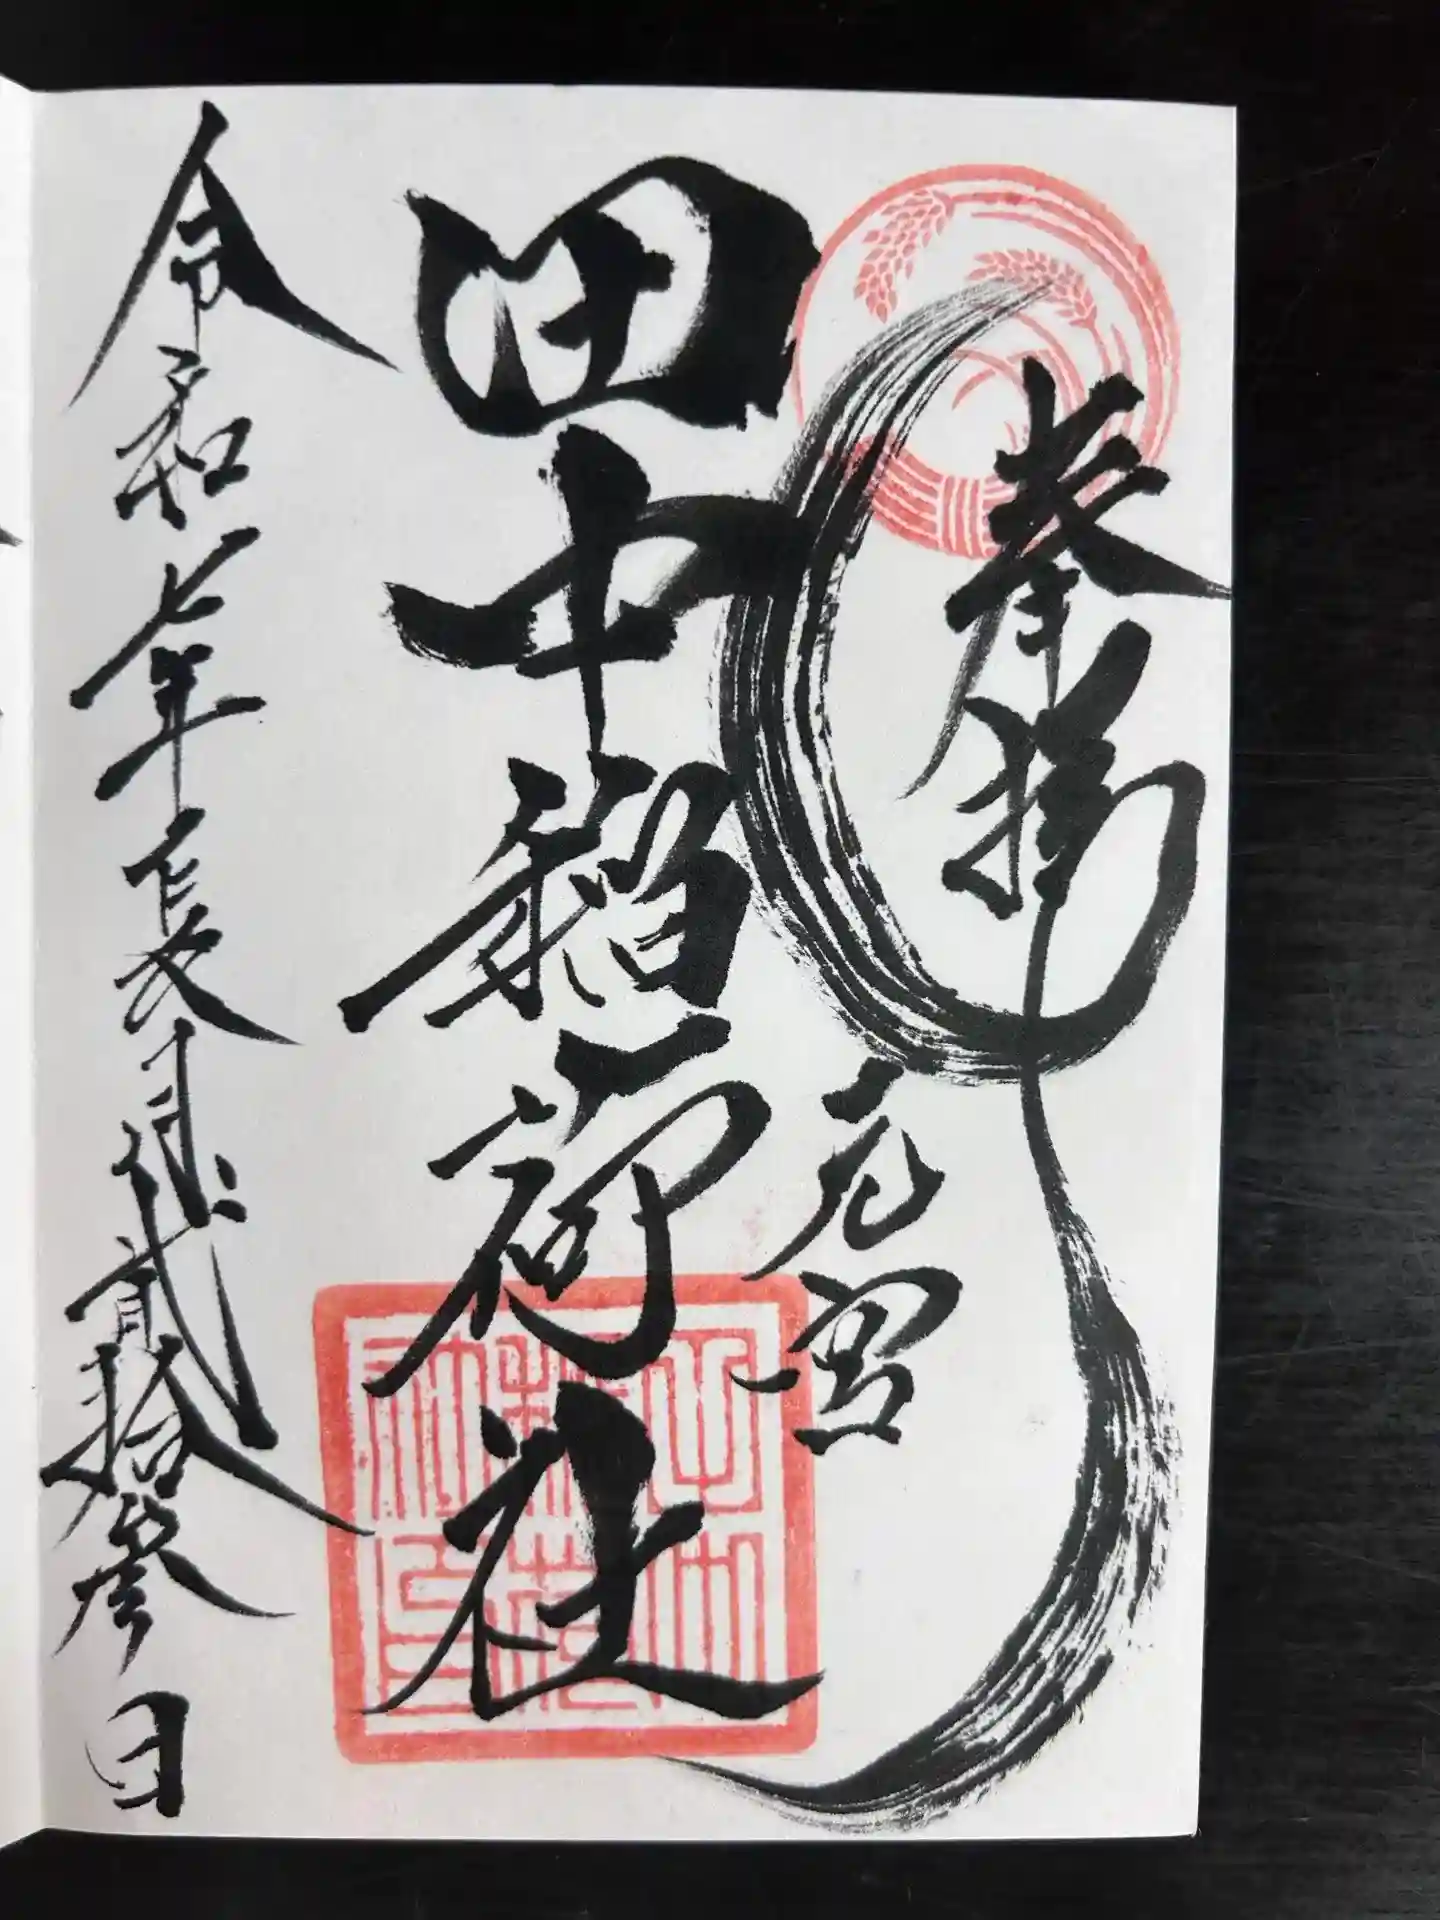 奉拝
元宮
田中稲荷社
令和七年長月貳拾参日